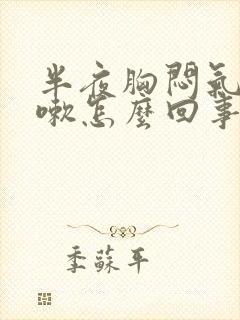 半夜胸悶氣
嗽怎麼回事
季蘇平